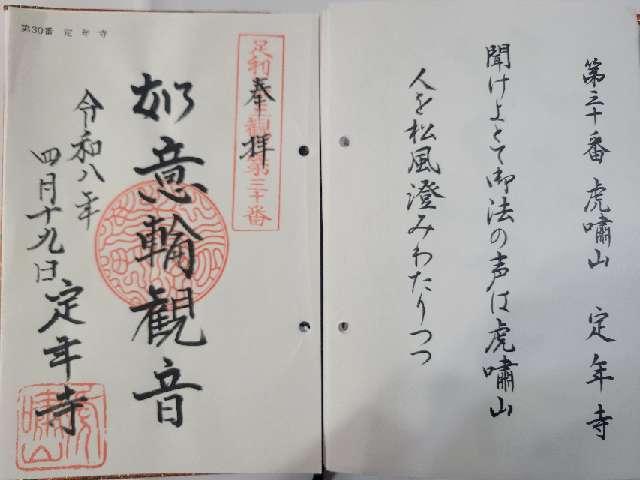 第三十番 虎嘯山 定年寺
聞けよとて御法の声は虎嘯山
人を松風澄みわたりつつ
第30番 定年寺
足利三十三観音第三十番
奉拝
如意輪観音
令和八年
四月十九日
定年寺
虎嘯山